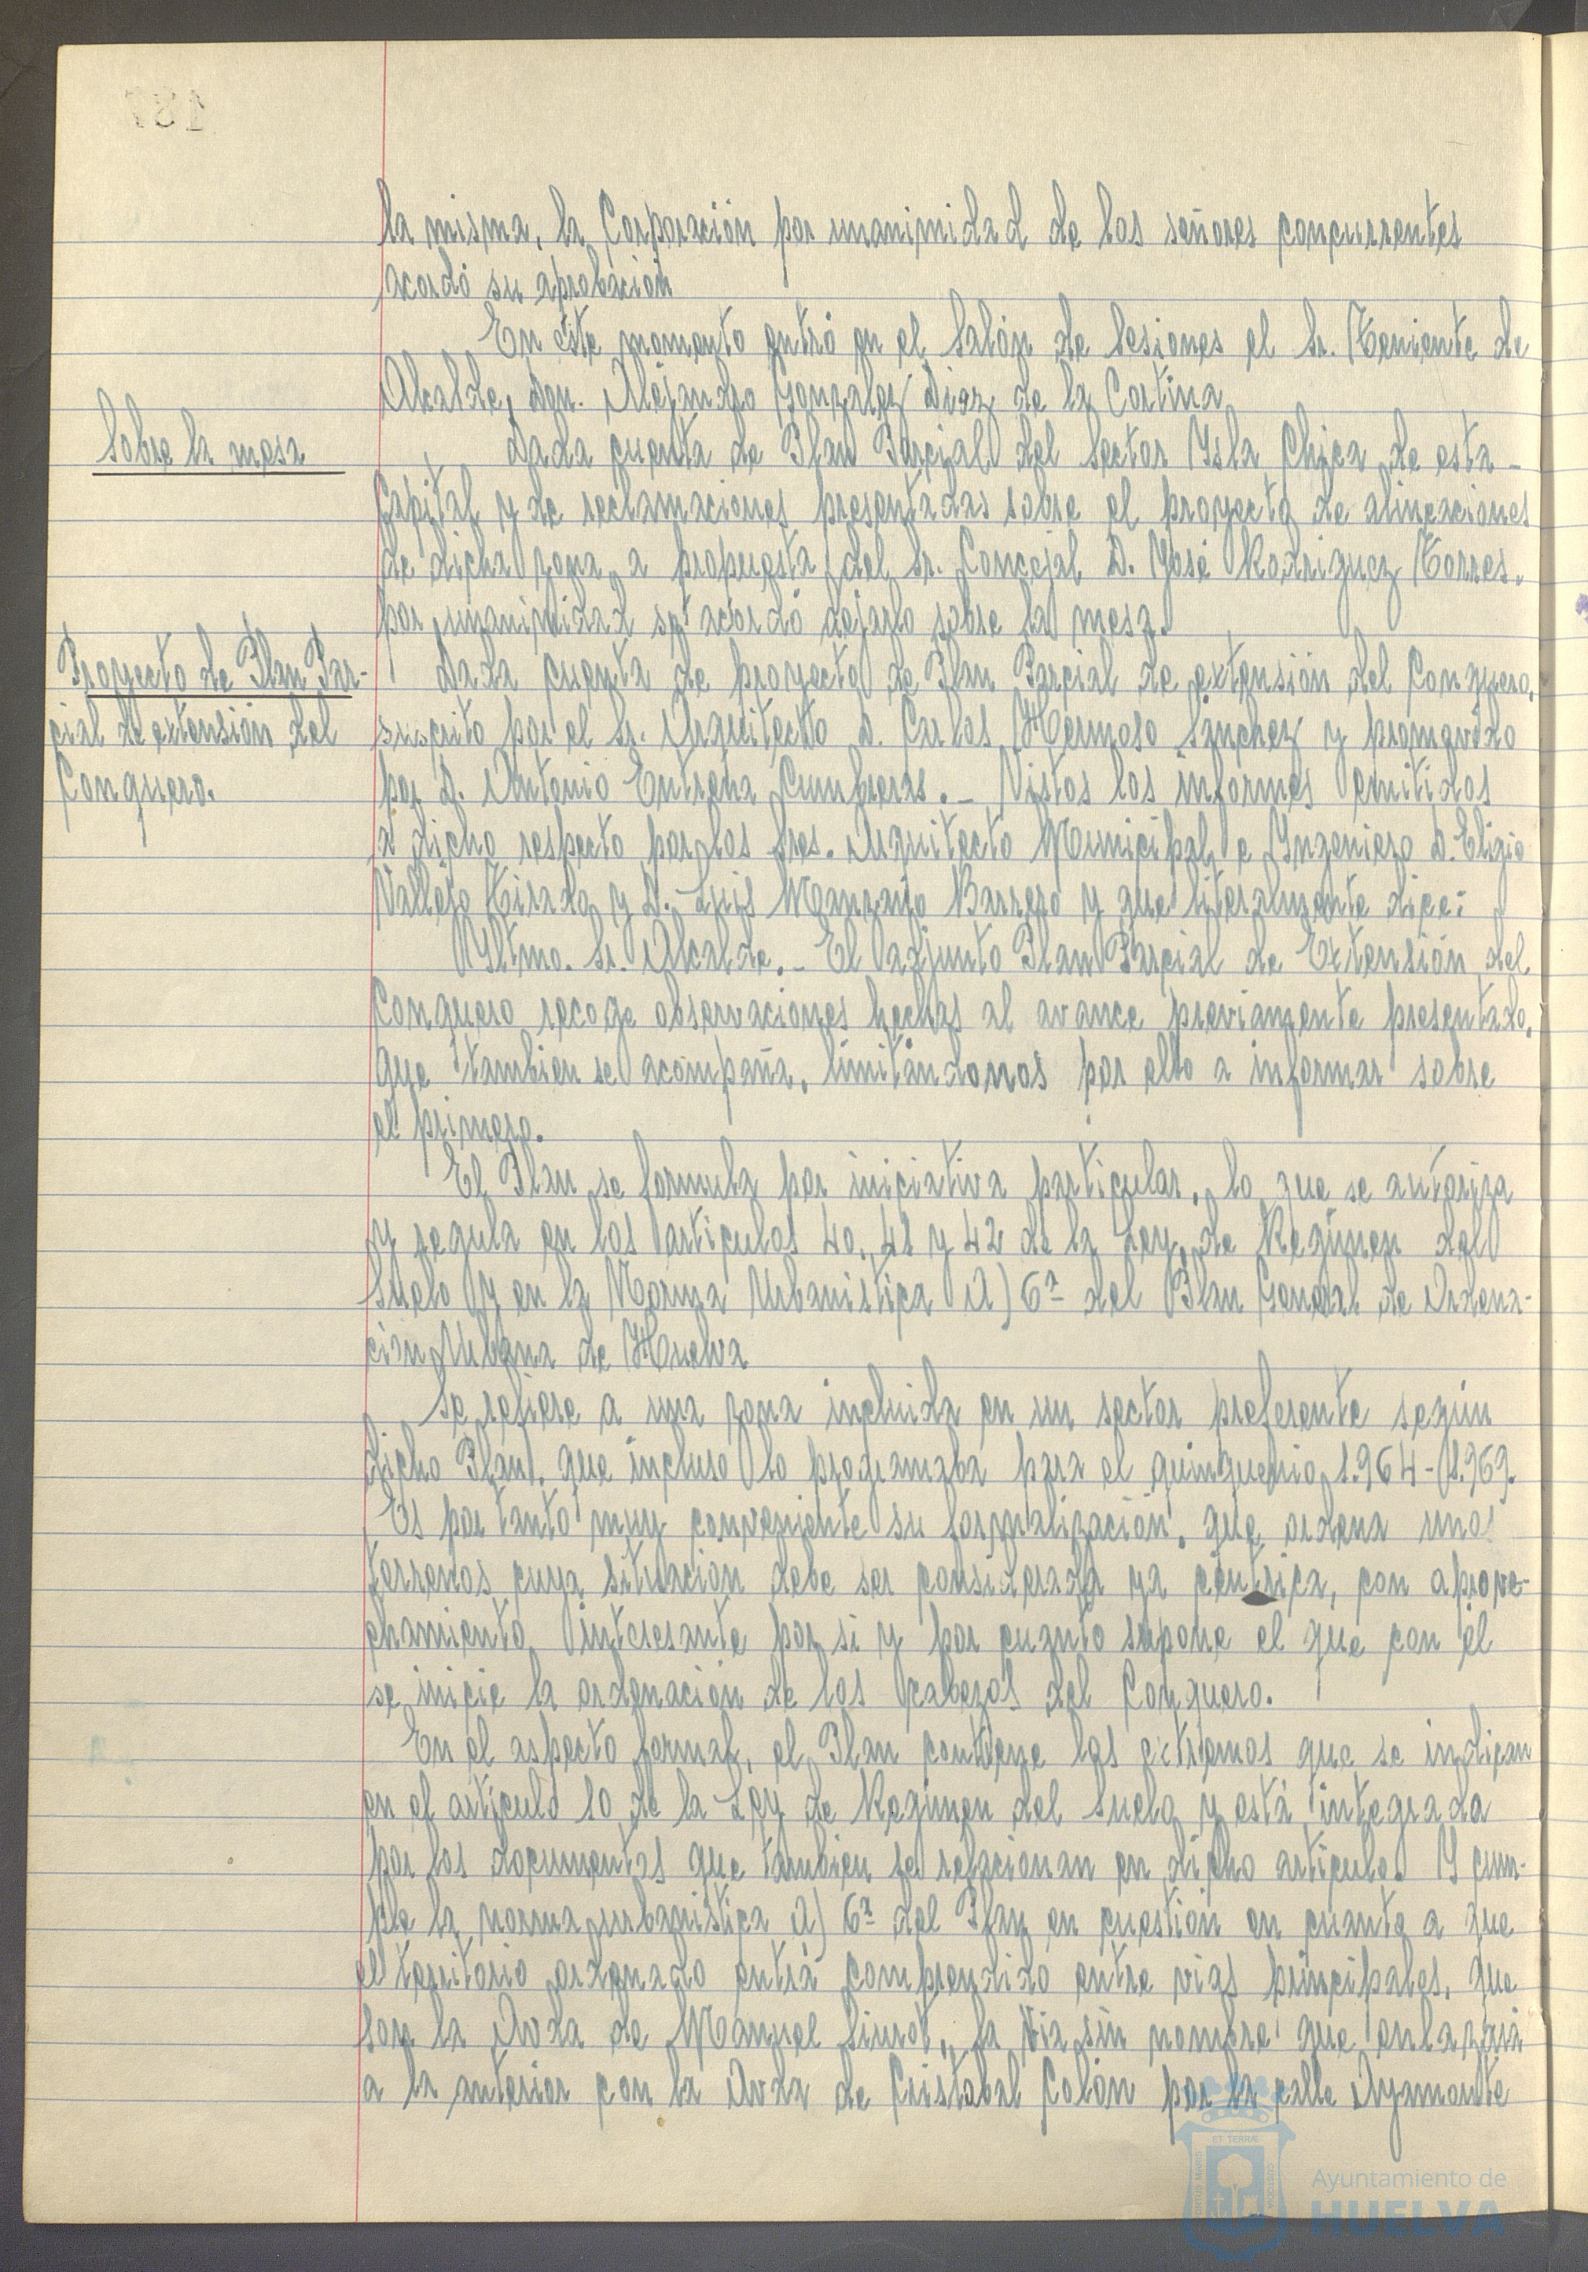 187
la misma, la Corporación por unanimidad de los señores concurrentes
acordó su aprobación
En este momento entró en el Salón de Sesiones el Sr. Teniente de
Alcalde, Don. Alejandro Gonzalez Diaz de la Cortina
Sobre la mesa
Dada cuenta de Plan Parcial del Sector Ysla Chica de esta
Capital y de reclamaciones presentadas sobre el proyecto de alineaciones
de dicha zona, a propuesta del Sr. Concejal D. José Rodriguez Torres,
por unanimidad se acordó dejarlo sobre la mesa.
Proyecto de Plan Par-
cial de extensión del
Conquero.
Dada cuenta de proyecto de Plan Parcial de extensión del Conquero,
suscrito por el Sr. Arquitecto D. Carlos Hermoso Sanchez y promovido
por D. Antonio Entrena Cumbreras.- Vistos los informes emitidos
a dicho respecto por los Sres. Arquitecto Municipal e Yngeniero D. Eligio
Vallejo Tirado y D. Luis Manzano Barrero y que literalmente dice:
Yltmo. Sr. Alcalde.- El adjunto Plan Parcial de Extensión del
Conquero recoge observaciones hechas al avance previamente presentado,
que tambien se acompaña, limitándonos por ello a informar sobre
el primero.
El Plan se formula por iniciativa particular, lo que se autoriza
y regula en los articulos 40, 41 y 42 de la Ley de Regimen del
Suelo y en la Norma Urbanistica A) 6ª del Plan General de Ordena-
ción Urbana de Huelva
Se refiere a una zona incluida en un sector preferente según
dicho Plan, que incluso lo programaba para el quinquenio 1.964-1.969.
Es por tanto muy conveniente su formalización, que ordena unos
terrenos cuya situación debe ser considerada ya céntrica, con aprove-
chamiento interesante por si y por cuanto supone el que con él
se inicie la ordenación de los cabezos del Conquero.
En el aspecto formal, el Plan contiene los extremos que se indican
en el articulo 10 de la Ley de Regimen del Suelo y está integrada
por los documentos que tambien se relacionan en dicho articulo. Y cum-
ple la norma urbanistica A) 6ª del Plan en cuestión en cuanto a que
el territorio ordenado entra comprendido entre vias principales, que
son la Avda de Manuel Siurot, la via sin nombre que enlazará
a la anterior con la Avda de Cristobal Colón por la calle Ayamonte
Ayuntamiento de
HUELVA